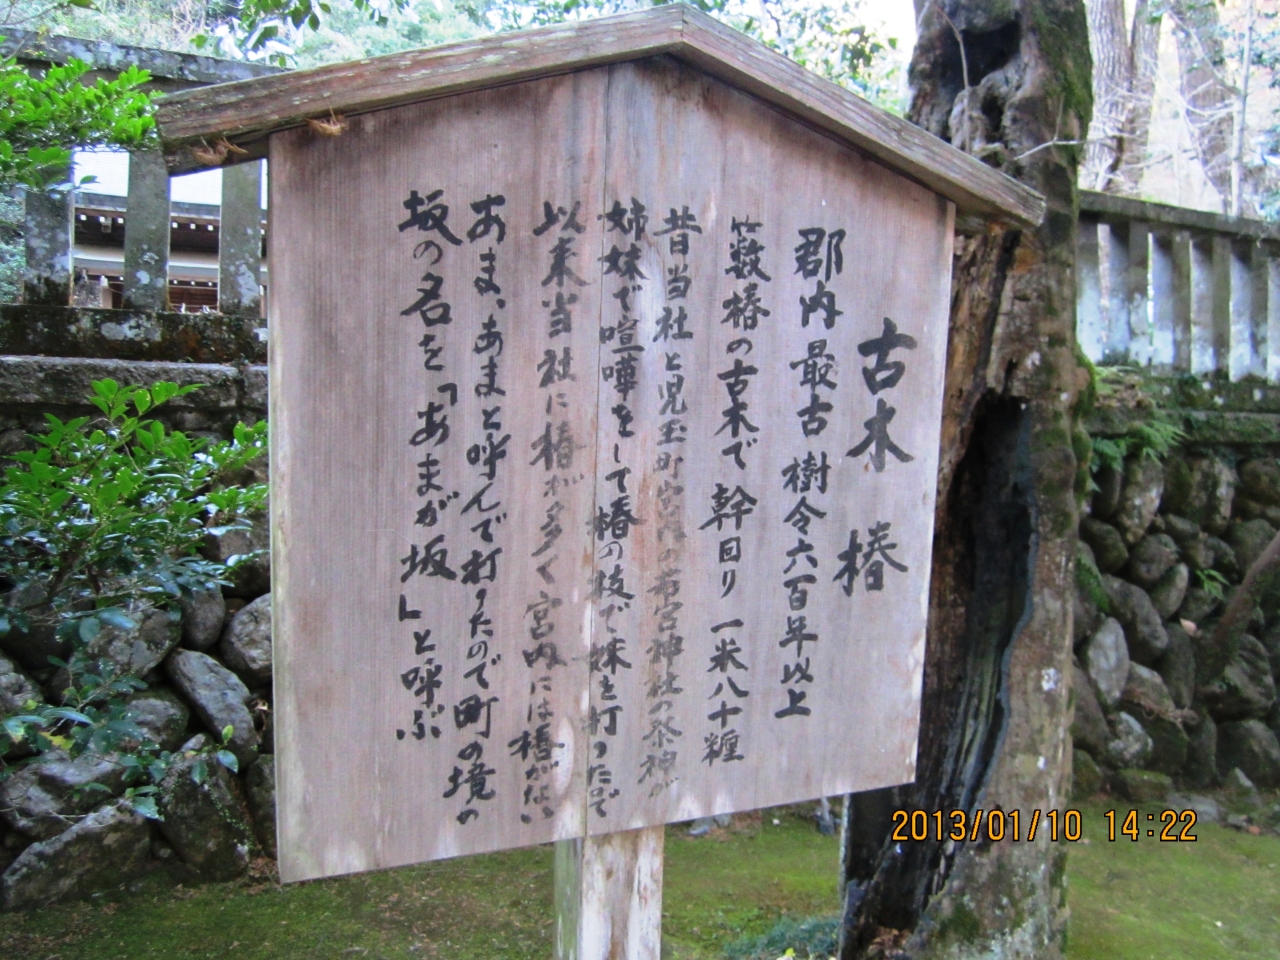 古木 椿
郡内最古 樹令六百年以上
藪椿の古木で 幹回り 一米八十糎
昔当社と児玉町宮内の若宮神社の祭神が
姉妹で喧嘩をして椿の枝で妹を打ったので
以来当社に椿が多く宮内には椿がない
あま、あまと呼んで打ったので町の境の
坂の名を「あまが坂」と呼ぶ
2013/01/10 14:22